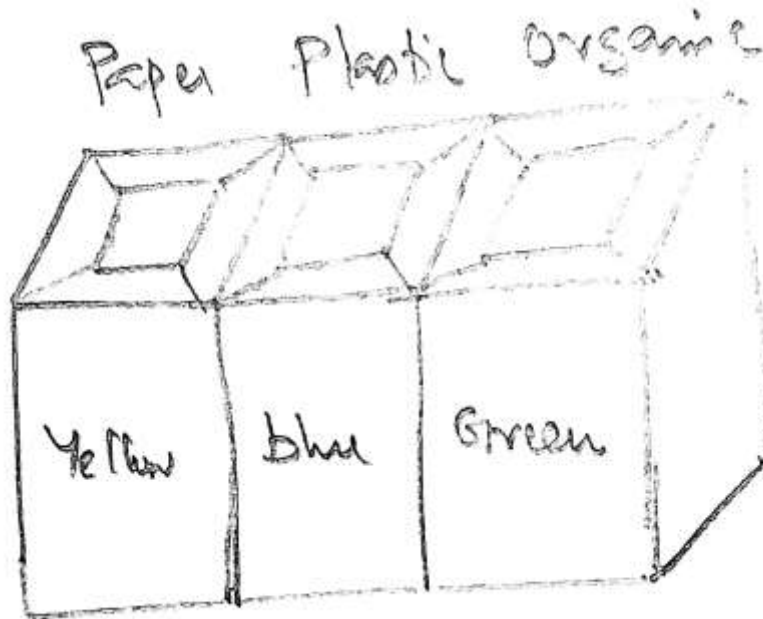 Paper Plastic Organic
Yellow blue Green